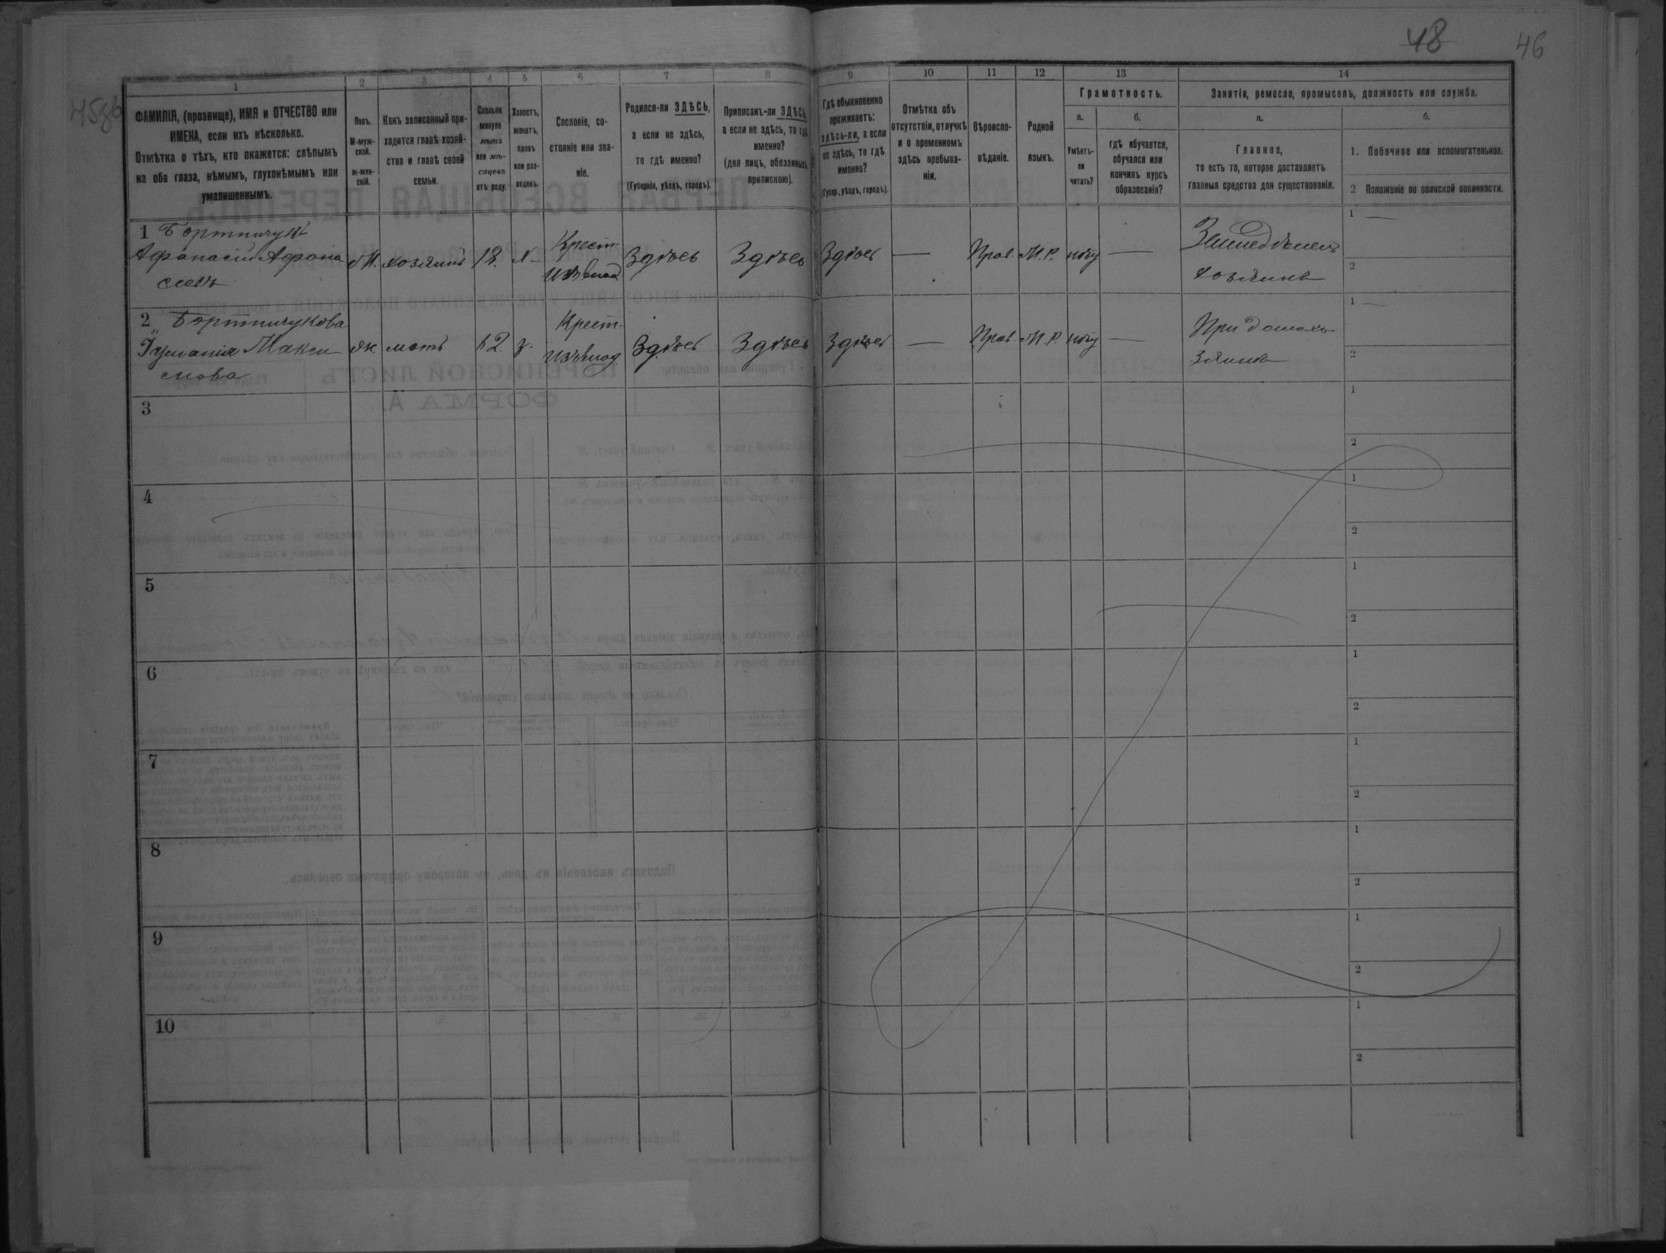 48 46
1 2 3 4 5 6 7 8 9 10 11 12 13 14
ФАМИЛІЯ, (прозвище), ИМЯ и ОТЧЕСТВО или
ИМЕНА, если ихъ нѣсколько.
Отмѣтка о тѣхъ, кто окажется: слѣпымъ
на оба глаза, нѣмымъ, глухонѣмымъ или
умалишеннымъ.
Полъ.
М-муж-
ской.
ж-жен-
скій.
Какъ записанный при-
ходится главѣ хозяй-
ства и главѣ своей
семьи.
Сколько
минуло
лѣтъ
или мѣ-
сяцевъ
отъ роду.
Холостъ,
женатъ,
вдовъ
или раз-
веденъ.
Сословіе, со-
стояніе или зва-
ніе.
Родился-ли ЗДѢСЬ,
а если не здѣсь,
то гдѣ именно?
(Губернія, уѣздъ, городъ).
Приписанъ-ли ЗДѢСЬ,
а если не здѣсь, то гдѣ
именно?
(для лицъ, обязанныхъ
припискою).
Гдѣ обыкновенно
проживаетъ:
здѣсь-ли, а если
не здѣсь, то гдѣ
именно?
(Губер., уѣздъ, городъ).
Отмѣтка объ
отсутствіи, отлучкѣ
и о временномъ
здѣсь пребыва-
ніи.
Вѣроиспо-
вѣданіе.
Родной
языкъ.
Грамотность.
а.
Умѣетъ-
ли
читать?
б.
гдѣ обучается,
обучался или
кончилъ курсъ
образованія?
Занятіе, ремесло, промыселъ, должность или служба.
а.
Главное,
то есть то, которое доставляетъ
главныя средства для существованія.
б.
1. Побочное или вспомогательное.
2 Положеніе по воинской повинности.
1 Бортничукъ
Афанасій Афана
сіевъ
М. хозяинъ 18. х. Крест. Здѣсь Здѣсь Здѣсь — Прав. М. Р. нѣту — Земледѣлецъ
хозяинъ
1 —
2
2 Бортничукова
Макси
мова
ж мать 62 в. Крест. Здѣсь Здѣсь Здѣсь — Прав. М. Р. нѣту —
1 —
2
3
1
2
4
1
2
5
1
2
6
1
2
7
1
2
8
1
2
9
1
2
10
1
2